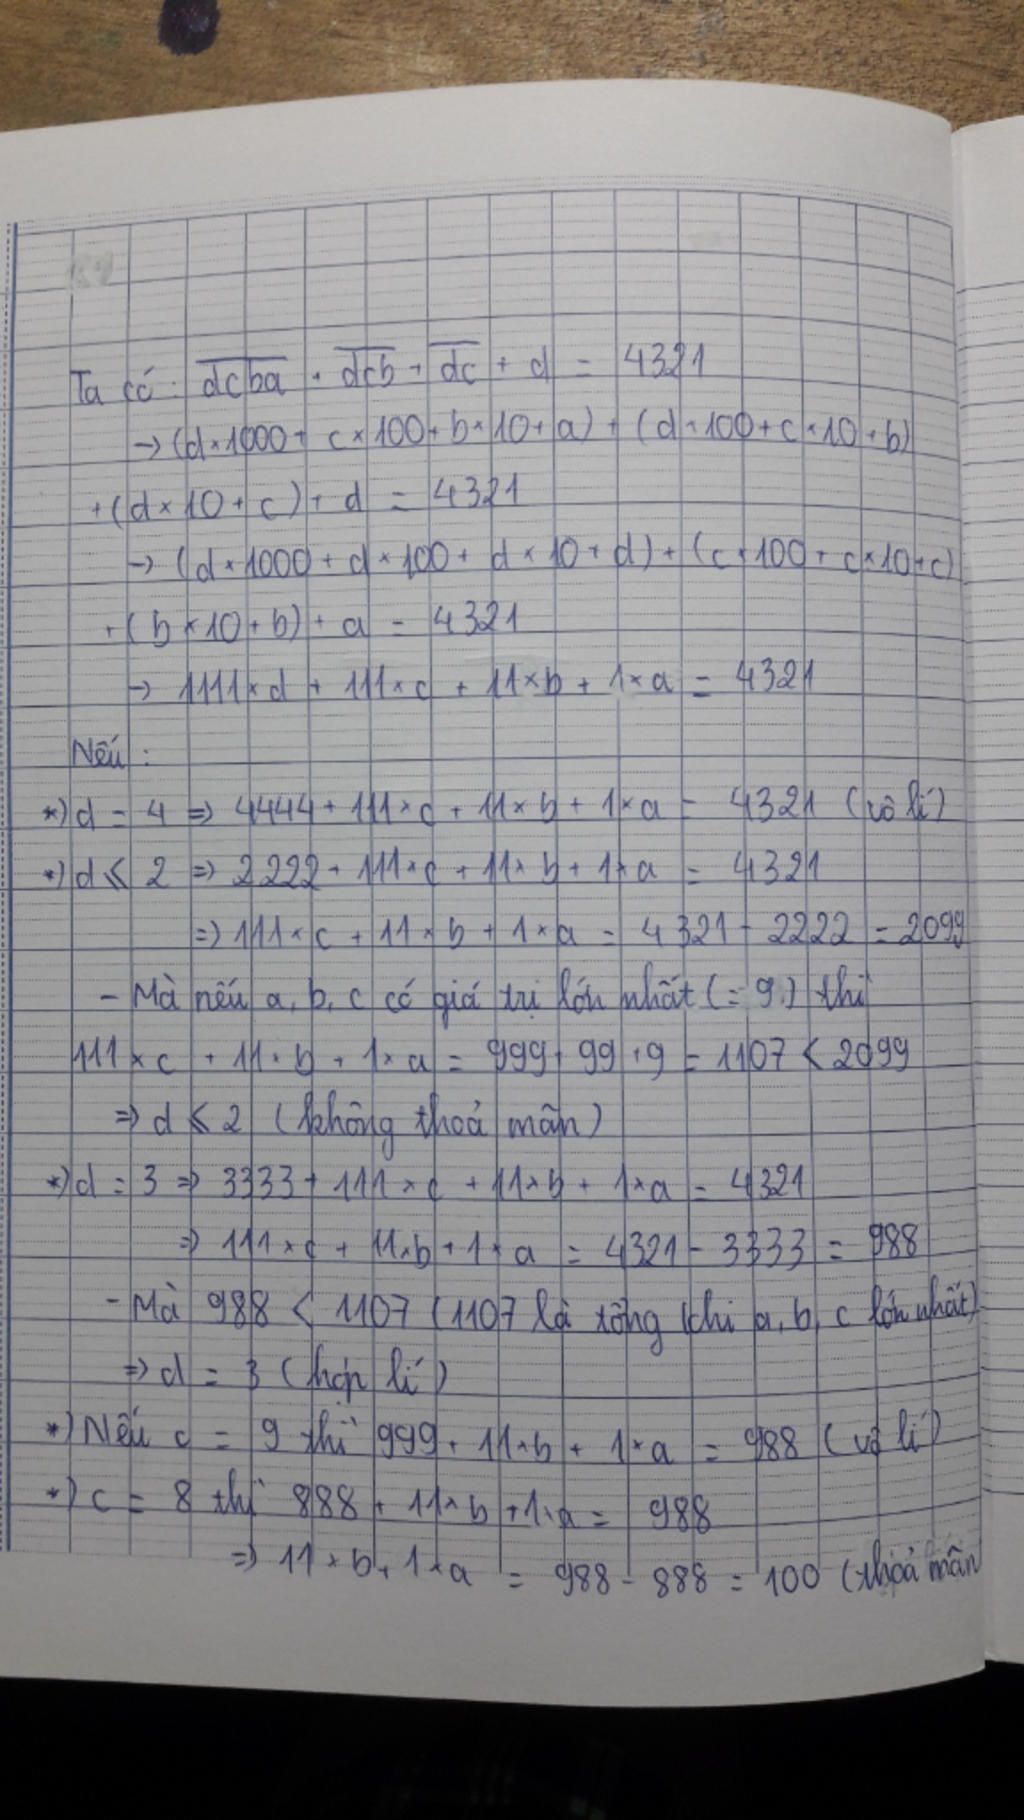 Ta có: dcba + dcb + dc + d = 4321
→ (d×1000 + c×100 + b×10 + a) + (d×100 + c×10 + b)
+ (d×10 + c) + d = 4321
→ (d×1000 + d×100 + d×10 + d) + (c×100 + c×10 + c)
+ (b×10 + b) + a = 4321
→ 1111×d + 111×c + 11×b + 1×a = 4321
Nếu:
*) d = 4 ⇒ 4444 + 111×c + 11×b + 1×a = 4321 (vô lí)
*) d ≤ 2 ⇒ 2222 + 111×c + 11×b + 1×a = 4321
⇒ 111×c + 11×b + 1×a = 4321 - 2222 = 2099
- Mà nếu a, b, c có giá trị lớn nhất (= 9) thì
111×c + 11×b + 1×a = 999 + 99 + 9 = 1107 < 2099
⇒ d ≤ 2 (không thoả mãn)
*) d = 3 ⇒ 3333 + 111×c + 11×b + 1×a = 4321
⇒ 111×c + 11×b + 1×a = 4321 - 3333 = 988
- Mà 988 < 1107 (1107 là tổng khi a, b, c lớn nhất)
⇒ d = 3 (hợp lí)
*) Nếu c = 9 thì 999 + 11×b + 1×a = 988 (vô lí)
*) c = 8 thì 888 + 11×b + 1×a = 988
⇒ 11×b + 1×a = 988 - 888 = 100 (thoả mãn